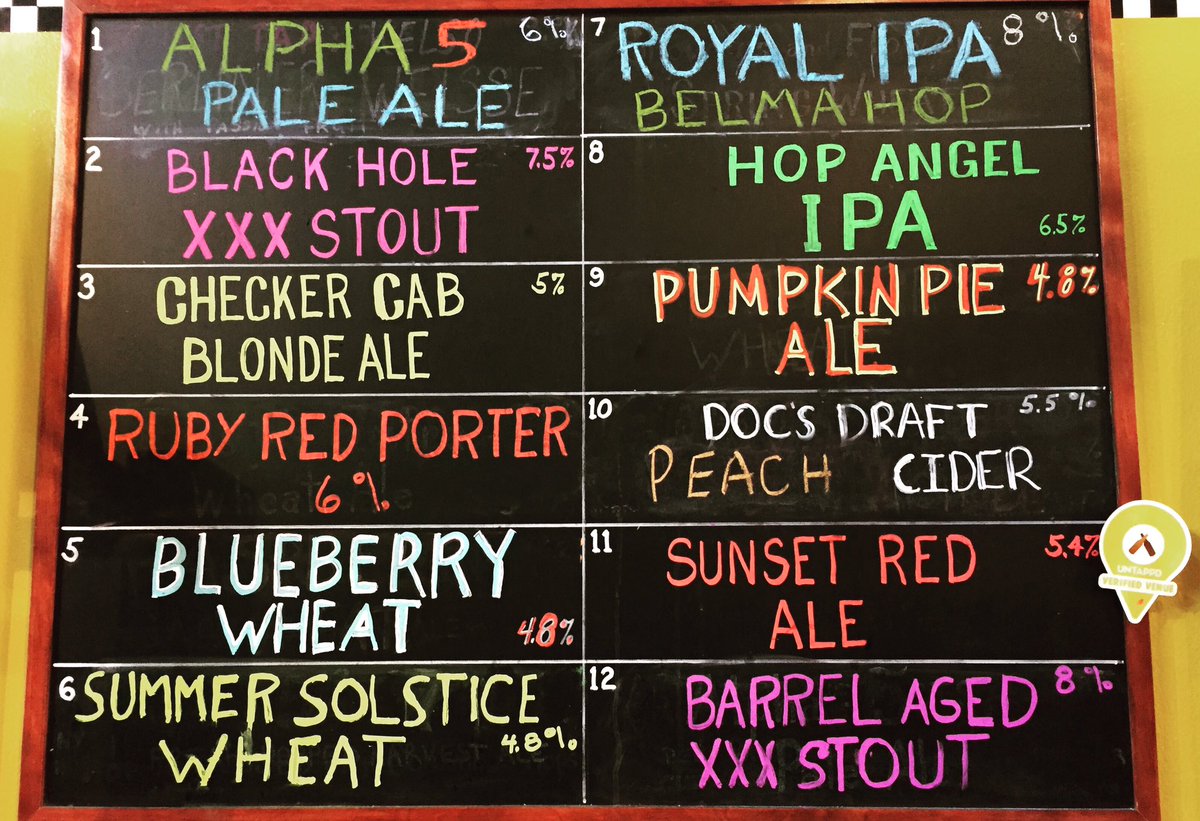 1 ALPHA 5 6%
PALE ALE
2 BLACK HOLE 7.5%
XXX STOUT
3 CHECKER CAB 5%
BLONDE ALE
4 RUBY RED PORTER
6%
5 BLUEBERRY
WHEAT 4.8%
6 SUMMER SOLSTICE
WHEAT 4.8%
7 ROYAL IPA 8%
BELMA HOP
8 HOP ANGEL
IPA 6.5%
9 PUMPKIN PIE 4.8%
ALE
10 DOC'S DRAFT 5.5%
PEACH CIDER
11 SUNSET RED 5.4%
ALE
12 BARREL AGED 8%
XXX STOUT
UNTAPPD
VERIFIED VENUE